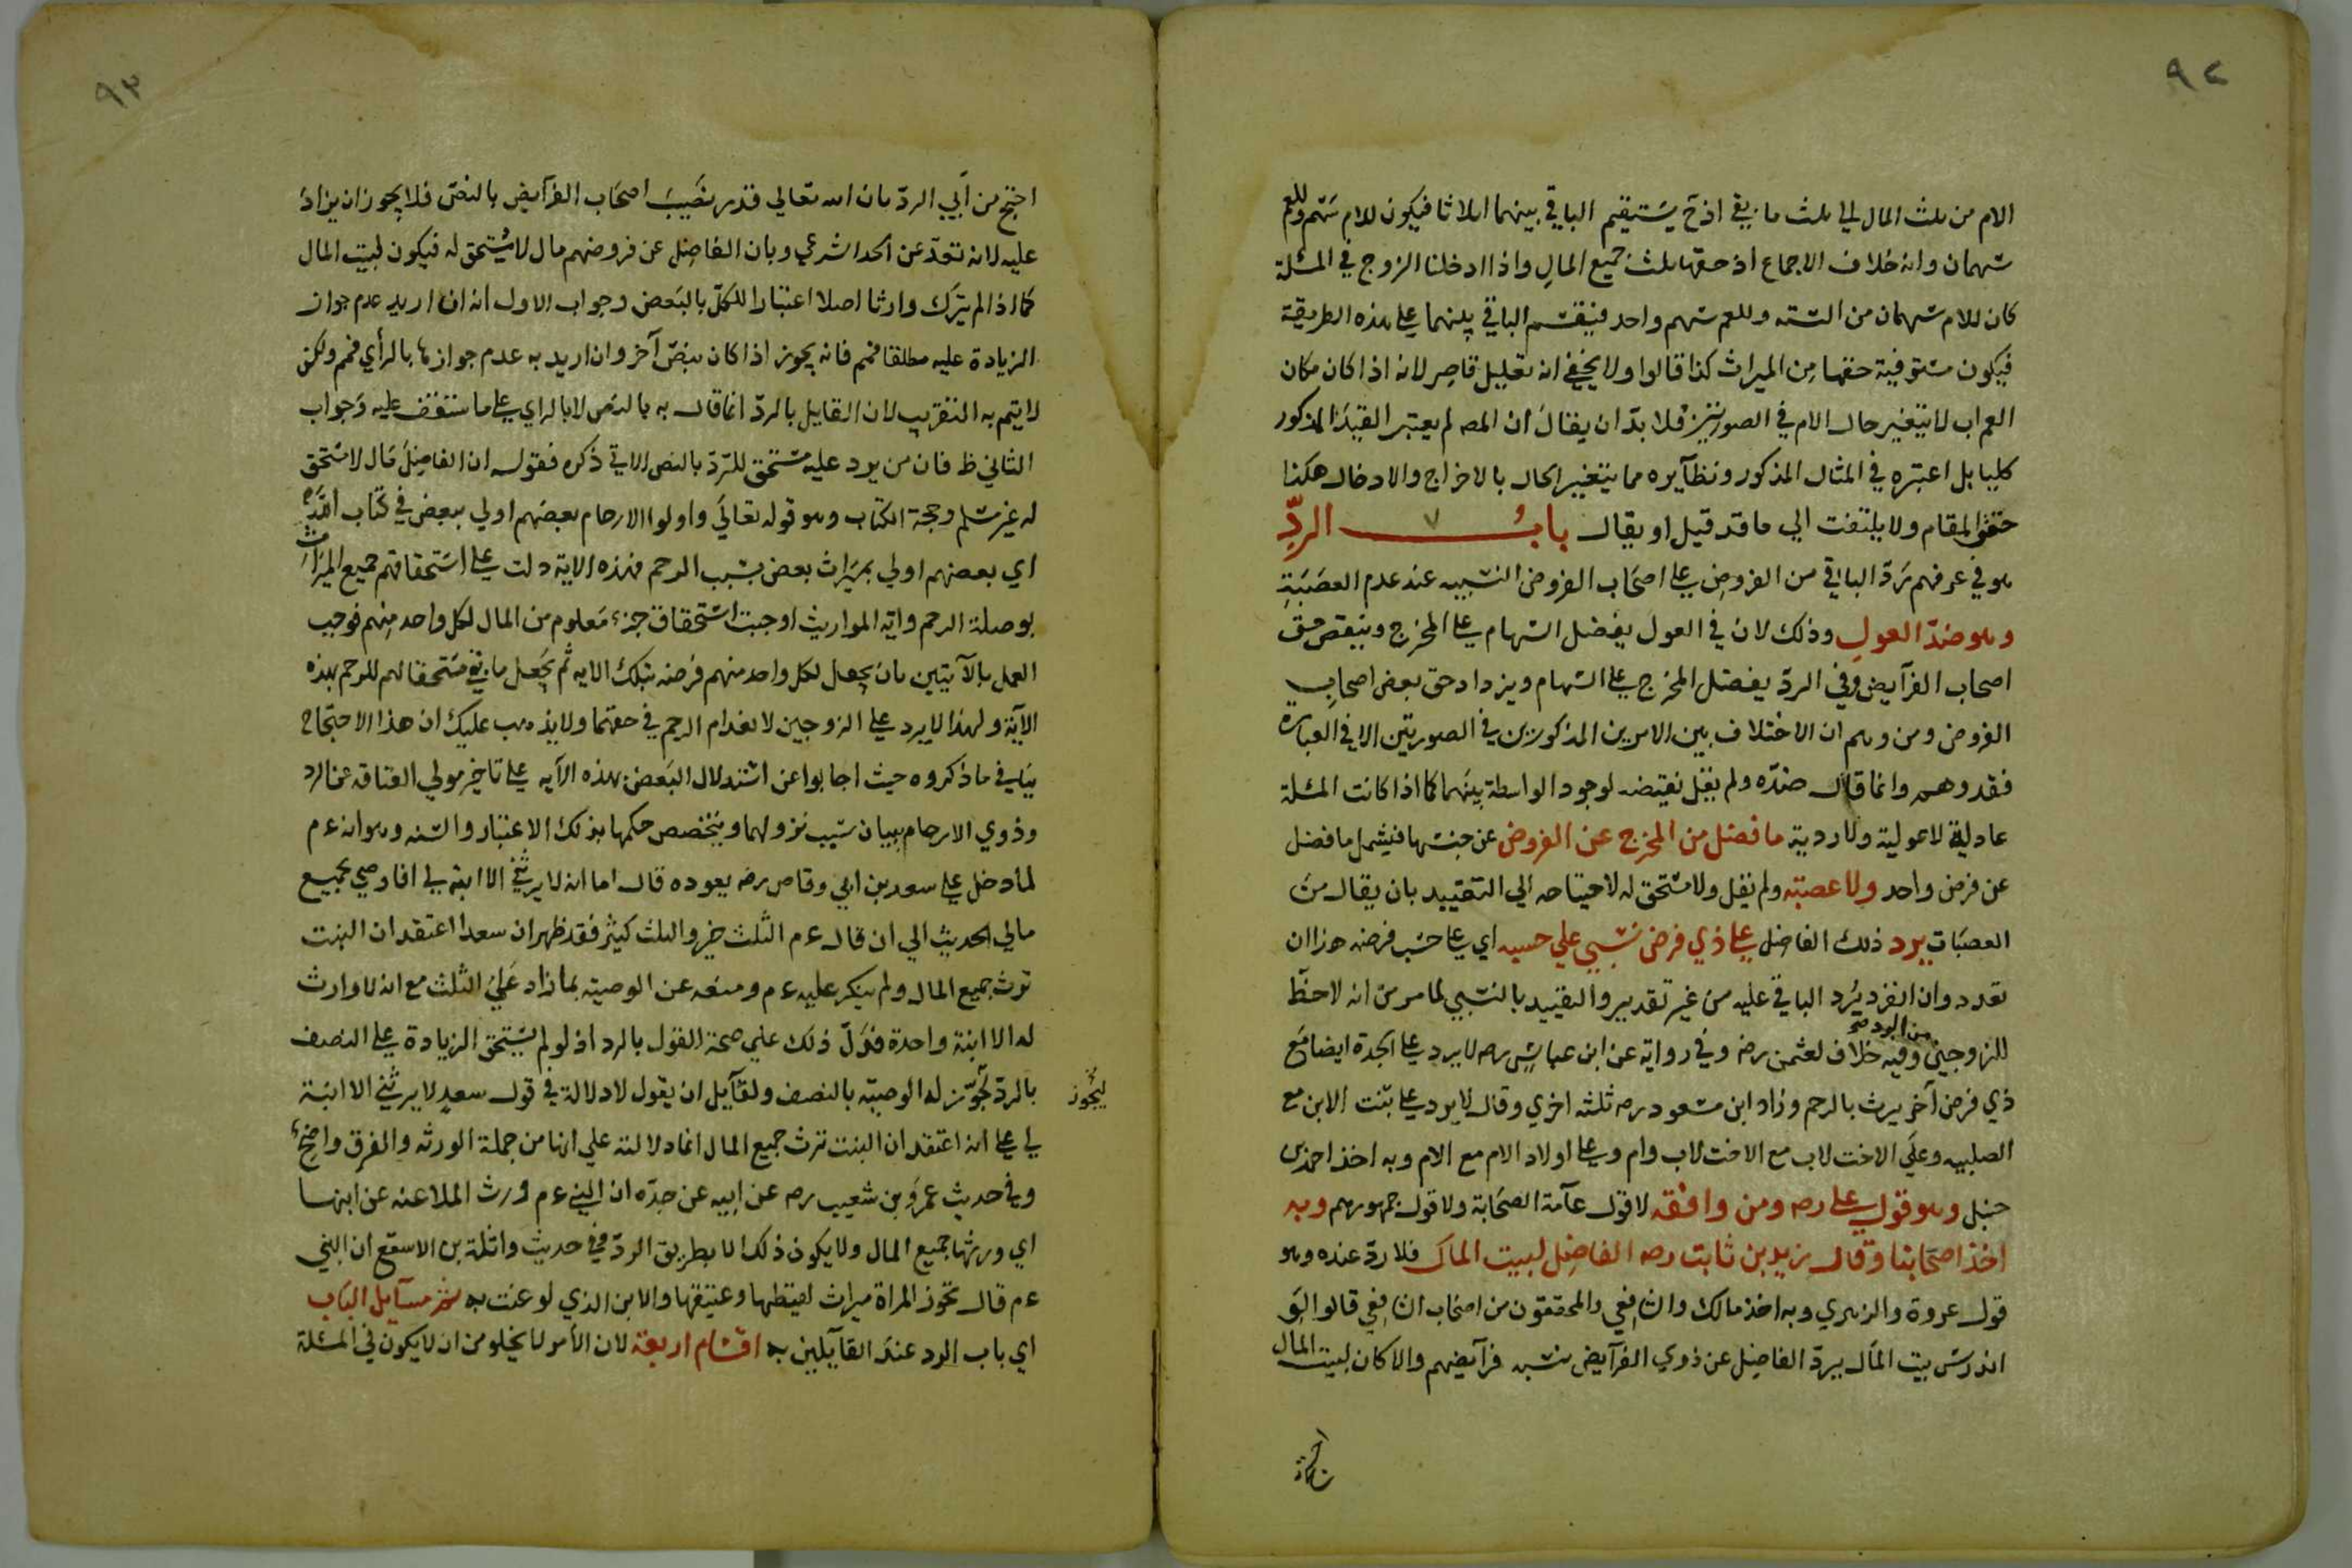 ٩٢
الام من ثلث المال الي ثلث ما يبقي اذ ح يستقيم الباقي بينهما اثلاثا فيكون للام سهم وللعم
سهمان وانه خلاف الاجماع اذ حقها ثلث جميع المال واذا ادخلنا الزوج في المسئلة
كان للام سهمان من الستة وللعم سهم واحد فينقسم الباقي بينهما علي هذه الطريقة
فيكون مستوفية حقها من الميراث كذا قالوا ولا يخفي انه تعليل قاصر لانه اذا كان مكان
العم اب لا يتغير حال الام في الصورتين فلا بد ان يقال ان المصـ لم يعتبر القيد المذكور
كليا بل اعتبره في المثال المذكور ونظآيره مما يتغير الحال بالاخراج والادخال هكذا
حقق المقام ولا يلتفت الي ما قد قيل او يقال باب الردّ
هو في عرفهم رَدّ الباقي من الفروض علي اصحاب الفروض النسبيه عند عدم العصَبَةِ
وهو ضدّ العول وذلك لان في العول يفضل السهام علي المخرج وينقص حق
اصحاب الفرآيض وفي الردّ يفضل المخرج علي السهام ويزداد حق بعض اصحاب
الفروض ومن وهم ان الاختلاف بين الامرين المذكورين في الصورتين الا في العبارة
فقد وهم وانما قال ضدّه ولم يقل نقيضه لوجود الواسطة بينهما كما اذا كانت المسئلة
عادلية لا عولية ولا ردية ما فضل من المخرج عن الفروض عن جنسها فيشمل ما فضل
عن فرض واحد ولا عصبته ولم يقل ولا مستحق له لاحتياجه الي التقييد بان يقال من
العصبات يرد ذلك الفاضل علي ذي فرض نسبي علي حسبه اي علي حسب فرضه هذا ان
تعدد وان انفرد يُرد الباقي عليه من غير تقدير والتقييد بالنسبي لما مر من انه لا حظّ
للزوجين من الرد صح وفيه خلاف لعثمن رضـ وفي رواية عن ابن عباس رضـ لا يرد علي الجدة ايضا مع
ذي فرض آخر يرث بالرحم وزاد ابن مسعود رضـ ثلثه اخري وقال لا يرد علي بنت الابن مع
الصلبيه وعلَي الاخت لاب مع الاخت لاب وام وعلي اولاد الام مع الام وبه اخذ احمد بن
حنبل وهو قول علي رضـ ومن وافقه لا قول عآمة الصحابة ولا قول جمهورهم وبه
اخذ اصحابنا وقال زيد بن ثابت رضـ الفاضل لبيت المال فلا ردّ عنده وهو
قول عروة والزهري وبه اخذ مالك والشافعي والمحققون من اصحاب الشافعي قالوا لو
اندرس بيت المال يردّ الفاضل عن ذوي الفرآيض بنسبه فرآيضهم والا كان لبيت المال
٩٣
احتج من اَبي الردّ بان الله تعالي قدر نصيبَ اصحاب الفرآيض بالنصّ فلا يجوز ان يزاد
عليه لانه تعدّ عن الحد الشرعي وبان الفاضل عن فروضهم مال لا مستحق له فيكون لبيت المال
كما اذا لم يترك وارثا اصلا اعتبارا للكلّ بالبعض وجواب الاول انه ان اريد عدم جواز
الزيادة عليه مطلقا فمم فانه يجوز اذا كان بنصّ آخر وان اريد به عدم جوازها بالرأي فمم ولكن
لا يتم به التقريب لان القايل بالردّ انما قال به بالنص لا بالراي علي ما ستقف عليه وجواب
الثاني ظ فان من يرد عليه مستحق للردّ بالنص الاتي ذكره فقوله ان الفاضل مال لا مستحق
له غير مسلم وحجة الكتاب وهو قوله تعالي واولوا الارحام بعضهم اولي ببعض في كتاب الله
اي بعضهم اولي بميراث بعض بسبب الرحم فهذه الاية دلت علي استحقاقهم جميع الميراث
بوصلة الرحم واية المواريث اوجبت استحقاق جزء معلوم من المال لكل واحد منهم فوجب
العمل بالآيتين بان يجعل لكل واحد منهم فرضه بتلك الايه ثم يجعل ما بقي مستحقا لهم للرحم بهذه
الآية ولهذا لا يرد علي الزوجين لانعدام الرحم في حقهما ولا يذهب عليك ان هذا الاحتجاج
ينافي ما ذكروه حيث اجابوا عن استدلال البعض بهذه الآيه علي تاخير مولي العتاقه عن الرد
وذوي الارحام ببيان سبب نزولهما وبتخصص حكمها بذلك الاعتبار والسنه وهو انه ع م
لما دخل علي سعد بن ابي وقاص رضـ يعوده قال اما انه لا يرثني الا ابنة لي افاوصي بجميع
مالي الحديث الي ان قال ع م الثلث خير والثلث كثير فقد ظهر ان سعدا اعتقد ان البنت
ترث جميع المال ولم ينكر عليه ع م ومنعه عن الوصية بما زاد علي الثلث مع انه لا وارث
له الا ابنة واحدة فدلّ ذلك علي صحة القول بالرد اذ لو لم يستحق الزيادة علي النصف
بالردّ لجوّز له الوصية بالنصف ولقآيل ان يقول لا دلالة في قول سعدٍ لا يرثني الا ابنة
ليجوز
لي علي انه اعتقد ان البنت ترث جميع المال انما دلالته علي انها من جملة الورثه والفرق واضح
وفي حديث عمرو بن شعيب رضـ عن ابيه عن جدّه ان النبي ع م ورث الملاعنه عن ابنها
اي ورثها جميع المال ولا يكون ذلك الا بطريق الردّ وفي حديث واثلة بن الاسقع ان النبي
ع م قال تحوز المراة ميراث لقيطها وعتيقها والابن الذي لوعنت به ثم مسآيل الباب
اي باب الرد عند القآيلين به اقسام اربعة لان الأمر لا يخلو من ان لا يكون في المسئلة